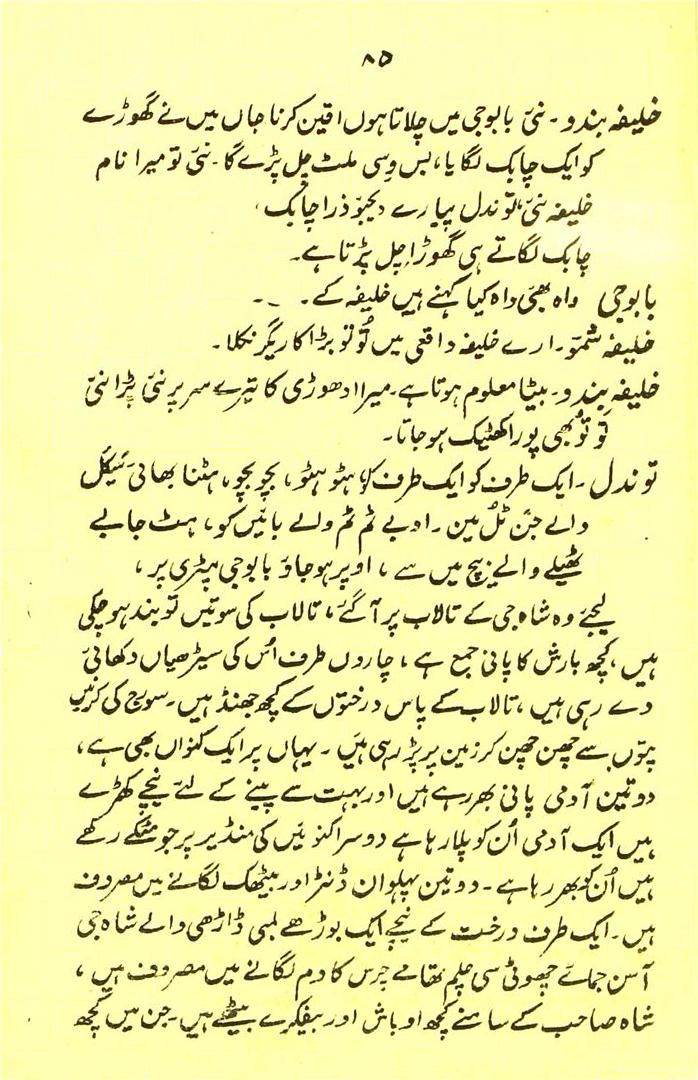 ۸۵
خلیفہ بندو۔ نئی بابوجی میں چلاتا ہوں اقین کرنا جاں میں نے گھوڑے
کو ایک چابک لگایا، بس وسی ملٹ چل پڑے گا۔ نئی تو میرا نام
خلیفہ نئی، توندل پیارے دیجو ذرا چابک،
چابک لگاتے ہی گھوڑا چل پڑتا ہے۔
بابوجی واہ بھئی واہ کیا کہنے ہیں خلیفہ کے۔ ۔ ۔
خلیفہ شمو۔ ارے خلیفہ واقعی میں تُو تو بڑا کاریگر نکلا۔
خلیفہ بندو۔ بیٹا معلوم ہوتا ہے۔ میرا ادھوڑی کا تیرے سر پر نئی پڑا نئی
تو تُو بھی پورا کھٹیک ہو جاتا۔
توندل۔ ایک طرف کو ایک طرف کو، ہٹو ہٹو، بچو بچو، ہٹنا بھائی سَیکل
والے جَن ٹل مین۔ اوبے ٹم ٹم والے بائیں کو، ہٹ جا بے
ٹھیلے والے بیچ میں سے، اوپر ہو جاؤ بابوجی پٹری پر،
لیجئے وہ شاہ جی کے تالاب پر آگئے، تالاب کی سوتیں تو بند ہو چکی
ہیں، کچھ بارش کا پانی جمع ہے، چاروں طرف اُس کی سیڑھیاں دکھائی
دے رہی ہیں، تالاب کے پاس درختوں کے کچھ جھنڈ ہیں۔ سورج کی کرنیں
پتوں سے چھن چھن کر زمین پر پڑ رہی ہیں۔ یہاں پر ایک کنواں بھی ہے،
دو تین آدمی پانی بھر رہے ہیں اور بہت سے پینے کے لئے نیچے کھڑے
ہیں ایک آدمی اُن کو پلا رہا ہے دوسرا کنوئیں کی منڈیر پر جو مٹکے رکھے
ہیں اُن کو بھر رہا ہے۔ دو تین پہلوان ڈنڑ اور بیٹھک لگانے میں مصروف
ہیں۔ ایک طرف درخت کے نیچے ایک بوڑھے لمبی ڈاڑھی والے شاہ جی
آسن جمائے چھوٹی سی چلم تھامے چرس کا دم لگانے میں مصروف ہیں،
شاہ صاحب کے سامنے کچھ اوباش اور بیفکرے بیٹھے ہیں۔ جن میں کچھ